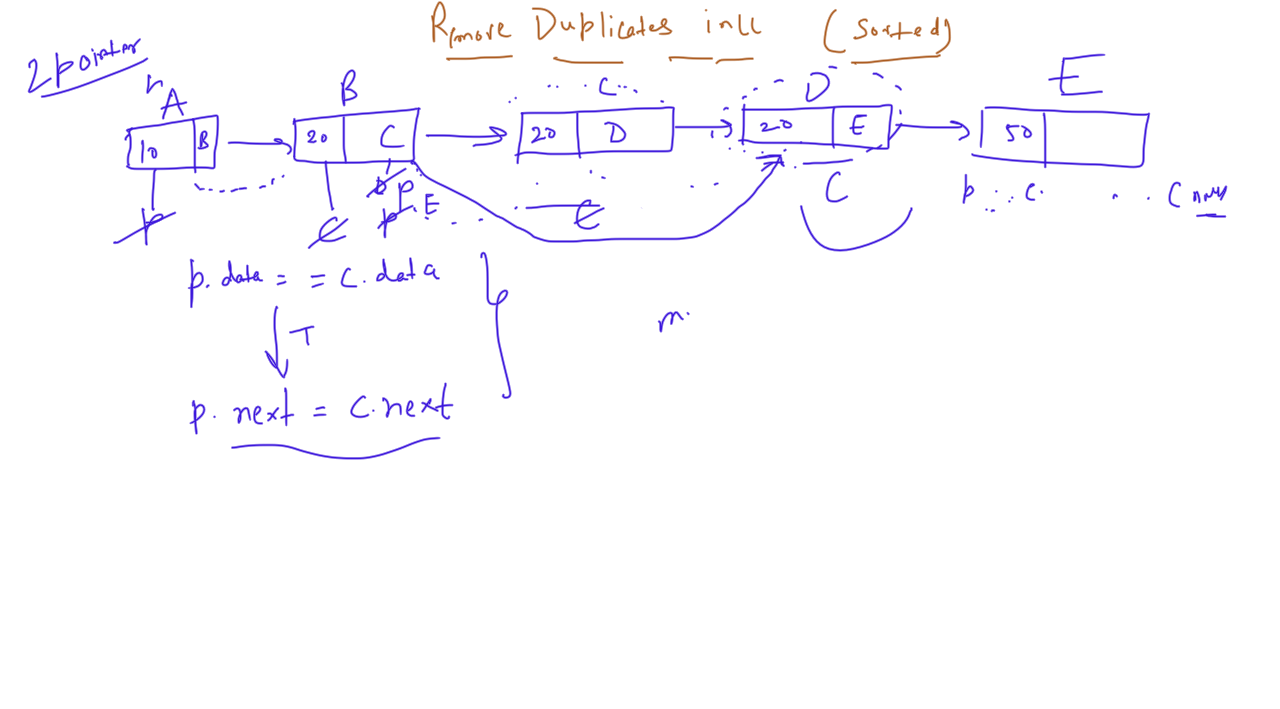 Remove Duplicates in LL (Sorted)
2 pointer
A B C D E
10 B 20 C 20 D 20 E 50
p c p E c C p c. C
p. data = = c. data
T
p. next = c. next
m.